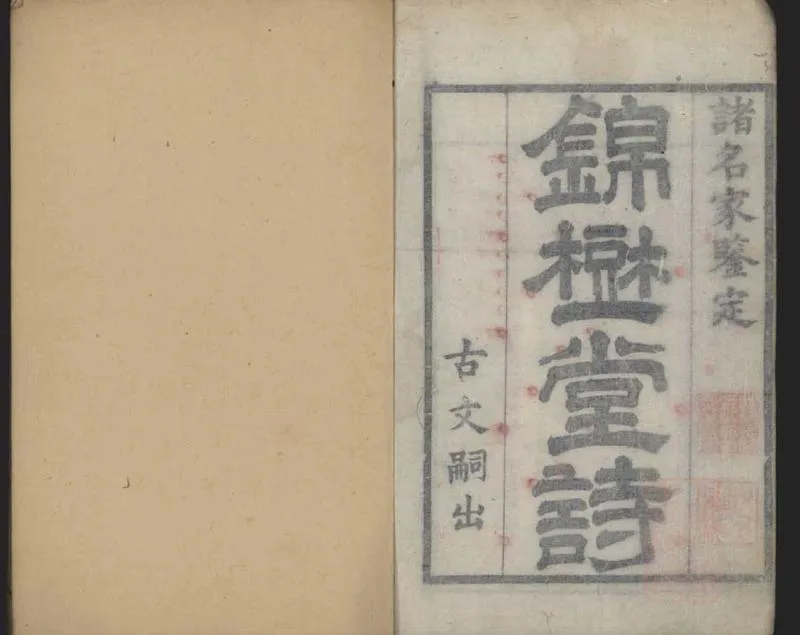 諸名家鑒定
錦樹堂詩
古文嗣出